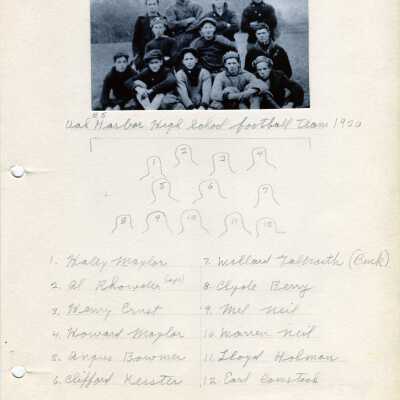 Oak Harbor High School football team 1920
1 2 3 4
5 6 7
8 9 10 11 12
1. Haley Maylor
2. Al Rhowder (age)
3. Henry Ernst
4. Howard Maylor
5. Angus Bowmer
6. Clifford Keister
7. Willard Galbraith (Buck)
8. Clyde Berry
9. Mel Neil
10. Warren Neil
11. Lloyd Holman
12. Earl Comstock